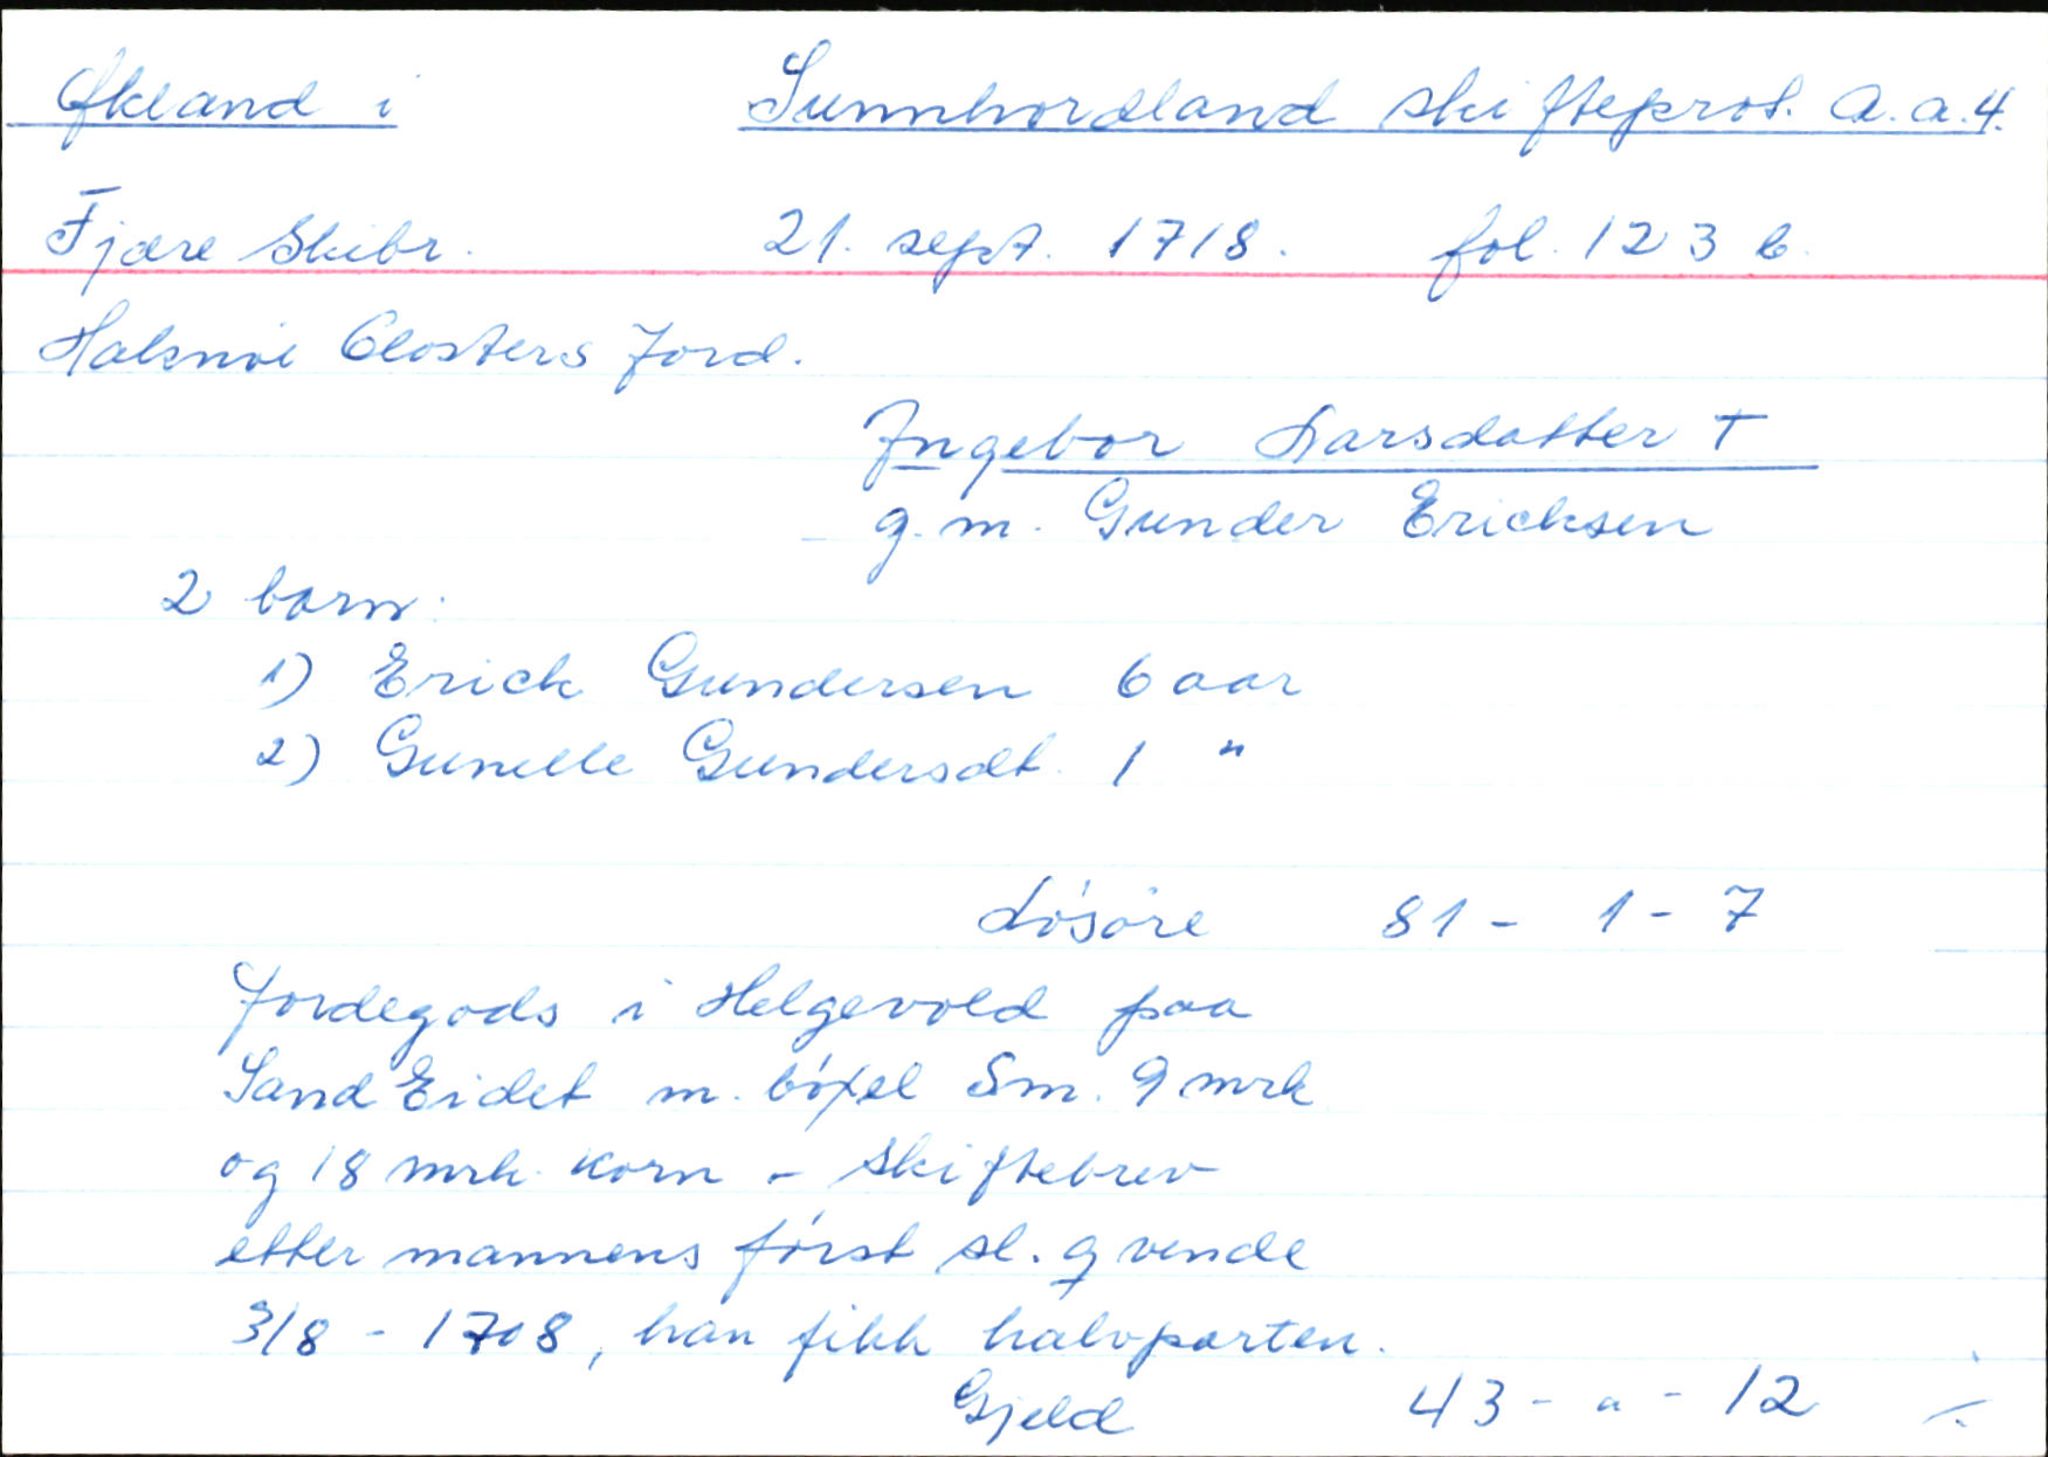 Økland i Sunnhordland skifteprot. A.a.4.
Fjære Skibr. 21. sept. 1718. fol. 123 b.
Halsnøe Closters Jord.
Ingebor Larsdatter †
g.m. Gunder Ericksen
2 barn:
1) Erick Gundersen 6 aar
2) Gunelle Gundersdt. 1 "
Løsøre 81 - 1 - 7
Jordegods i Helgevold paa
Sand Eidet m. bøxel Sm. 9 mrk
og 18 mrk. korn - skiftebrev
etter mannens først sl. qvende
3/8 - 1708, han fikk halvparten.
Gjeld 43 - " - 12 ./.